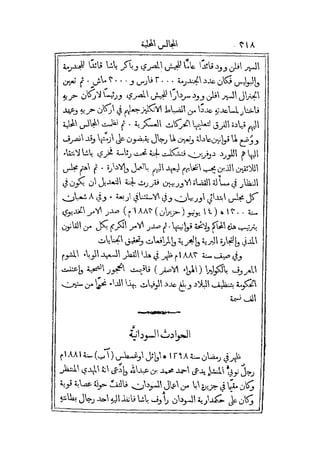 ٣١٨ المجالس المحلية
السير افلن وود قائدًا عامًّا للجيش المصري وباكر باشا قائدًا للجندرمة
والبوليس فكان عدد الجندرمة ٢٠٠٠ فارس و ٣٠٠٠ ماشٍ. ثم تعين
الجنرال السير افلن وود سردارًا للجيش المصري ورئيسًا لاركان حربه
فاختار لمساعدته عددًا من الضباط الانكليز جعلهم في اركان حربه وعهد
اليهم قيادة الفرق لتعليمها الحركات العسكرية. ثم نظمت المجالس المحلية
ووُضع لها قوانين عادلة وتعين لها رجال يقبضون على ازمتها وقد انصرف
اليها همّ اللورد دوفرين فتشكلت لجنة تحت رئاسة فخري باشا لانتقاء
اللائقين الذين يجب انتخابهم ليعهد اليهم بالعمل والادارة. ثم اهتم مجلس
النظار في مسألة القضاة الاوربيين فقررت لجنة التعديل ان يكون في
كل مجلس ابتدائي اوربيان وفي الاستئنافي اربعة. وفي ٨ شعبان
سنة ١٣٠٠ ﻫ (١٤ يونيو (حزيران) ١٨٨٣ م) صدر الامر الخديوي
بترتيب هذه المحاكم ولائحة قوانينها. ثم صدر الامر الكريم بكل من القانون
المدني والتجارة البرية والبحرية والمرافعات وتحقيق الجنايات
وفي صيف سنة ١٨٨٣م ظهر في هذا القطر السعيد الوباء المشوم
المعروف بالكوليرا (الهواء الاصفر) فاقيمت الحجور الصحية واعتنت
الحكومة بتنظيف البلاد وبلغ عدد الوفيات بهذا الداء نحوًا من ستين
الف نسمة
الحوادث السودانية
ظهر في رمضان سنة ١٢٩٨ ﻫ اوائل اوغسطس (آب) سنة ١٨٨١م
رجل نوبي المنشإ يدعى احمد محمد بن عبدالله وادّعى انهُ المهدي المنتظر
وكان مقيمًا في جزيرة ابا من اعمال السودان فالتفّ حولهُ عصابة قوية
وكان على حكمدارية السودان رأوف باشا فانفذ اليهِ احد رجال بطانتهِ